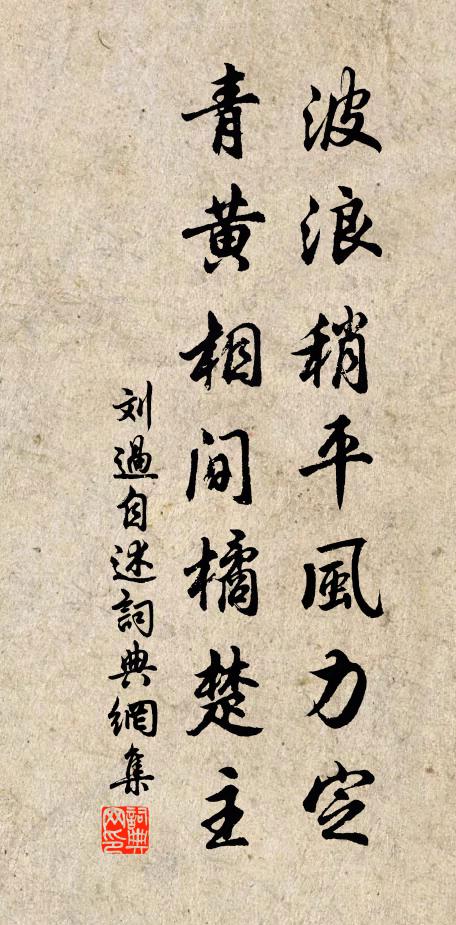 波浪稍平風力定
青黄相间橘楚主
刘過自述詞典網集
詞典网印